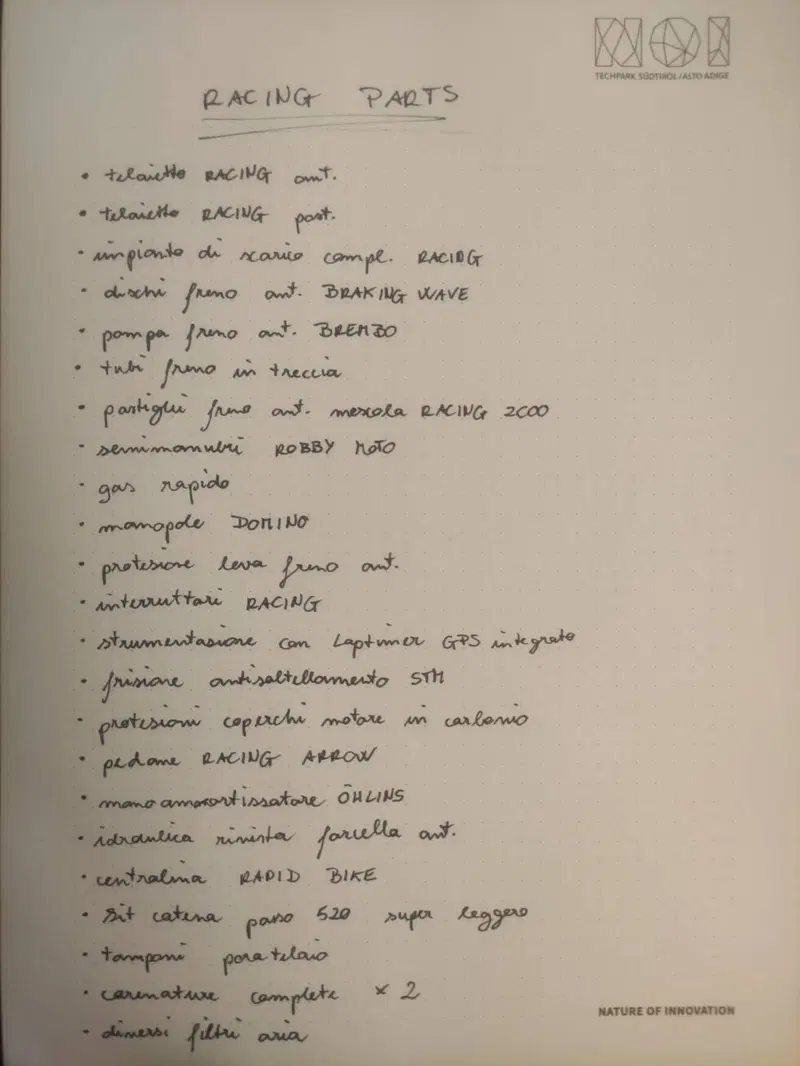 NOI
TECHPARK SÜDTIROL/ALTO ADIGE
RACING PARTS
• telaietto RACING ant.
• telaietto RACING post.
• impianto di scarico compl. RACING
• dischi freno ant. BRAKING WAVE
• pompa freno ant. BREMBO
• tubi freno in treccia
• pastiglie freno ant. mescola RACING 2000
• semimanubri ROBBY MOTO
• gas rapido
• manopole DOMINO
• protezione leva freno ant.
• interruttori RACING
• strumentazione con Laptimer GPS integrato
• frizione antisaltellamento STM
• protezioni coperchi motore in carbonio
• pedane RACING ARROW
• mono ammortizzatore ÖHLINS
• idraulica rivista forcella ant.
• centralina RAPID BIKE
• kit catena passo 520 super leggero
• tamponi paratelaio
• carenature complete x 2
• diversi filtri aria
NATURE OF INNOVATION